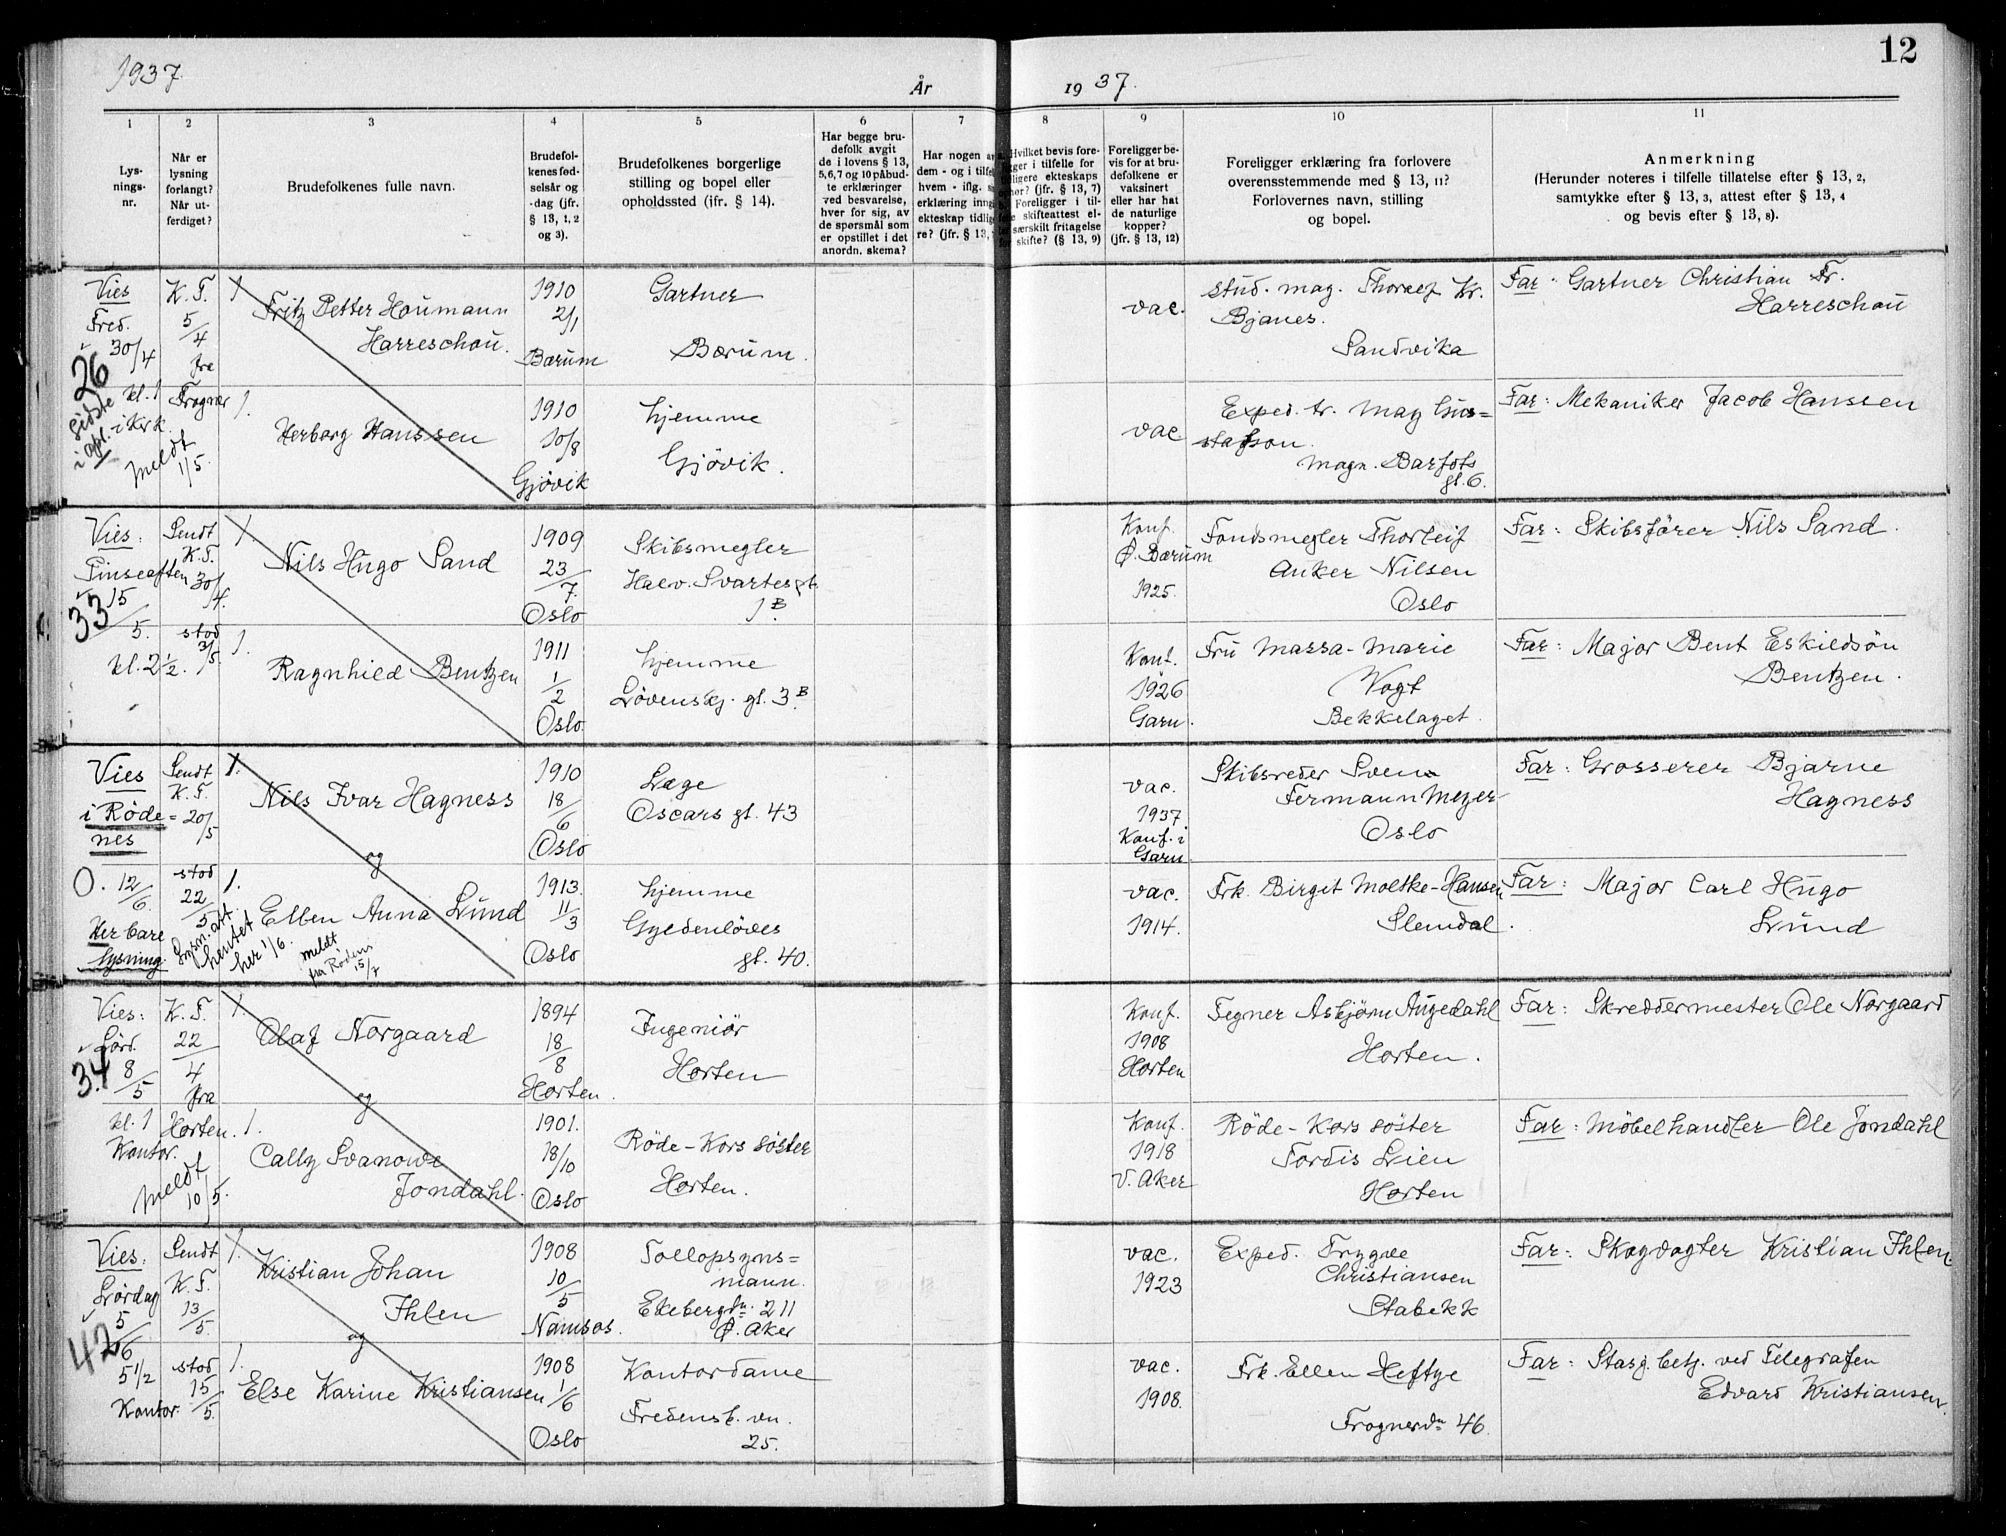 12
1937.
År
19 37.
1
2
3
4
5
6
7
8
9
10
11
Lys-
nings-
nr.
Når er
lysning
forlangt?
Når ut-
ferdiget?
Brudefolkenes fulle navn.
Brudefol-
kenes fød-
selsår og
-dag (jfr.
§ 13, 1, 2
og 3).
Brudefolkenes borgerlige
stilling og bopel eller
opholdssted (jfr. § 14).
Har begge bru-
defolk avgit
de i lovens § 13,
5,6,7 og 10 påbud-
te erklæringer
ved besvarelse,
hver for sig, av
de spørsmål som
er opstillet i det
anordn. skema?
Har nogen
dem - og i tilfel
hvem - iflg.
erklæring inng
ekteskap tidlig
re? (jfr. § 13,
Hvilket bevis fore-
gger i tilfelle for
ligere ekteskaps
hør? (jfr. § 13, 7)
Foreligger i til-
e skifteattest el-
særskilt fritagelse
for skifte? (§ 13, 9)
Foreligger be-
vis for at bru-
defolkene er
vaksinert
eller har hat
de naturlige
kopper?
(jfr. § 13, 12)
Foreligger erklæring fra forlovere
overensstemmende med § 13, 11?
Forlovernes navn, stilling
og bopel.
Anmerkning
(Herunder noteres i tilfelle tillatelse efter § 13, 2,
samtykke efter § 13, 3, attest efter § 13, 4
og bevis efter § 13, 8).
Vies
Fred.
30/4
26
kl. 1
i Kirk.
sidste
i apl.
meldt
1/5.
K. F.
5/4
fra
Frogner
1
Fritz Petter Houmann
Harreschou.
1910
2/1
Bærum
Gartner
Bærum.
vac.
stud. mag. Thoralf Kr.
Bjanes.
Sandvika
Far: Gartner Christian Fr.
Harreschou
1.
Herborg Hanssen
1910
10/8
Gjøvik
hjemme
Gjövik.
vac
Exped. tr. Mag Gus=
stafson.
Magn. Barfots
gt. 6.
Far: Mekaniker Jacob Hanssen
Vies:
Pinseaften
15/5.
33
kl. 2 1/2.
Sendt
K. F.
30/4.
stod
3/5.
1
Nils Hugo Sand
1909
23/7.
Oslo
Skibsmegler
Halv. Svartes gt.
1 B.
Konf.
Ø. Bærum
1925.
Fondsmegler Thorleif
Anker Nilsen
Oslo
Far: Skibsfører Nils Sand.
1.
Ragnhild Bentzen
1911
1/2
Oslo.
hjemme
Lövenskj. gt. 3 B.
Konf.
1926
Garn.
Fru Massa-Marie
Vogt
Bekkelaget.
Far: Major Bent Eskildsön
Bentzen.
Vies
i Röde=
nes
O. 12/6.
Her bare
lysning
Sendt
K. F.
20/5
stod
22/5
Lysn. att.
hentet
her 1/6.
1.
Nils Ivar Hagness
og
1910
18/6
Oslo
Læge
Oscars gt. 43
vac.
1937
Konf. i
Garn.
Skibsreder Sven
Fermann Meyer
Oslo
Far: Grosserer Bjarne
Hagness
1.
Ellen Anna Lund
meldt
fra Rödenes
15/7
1913.
11/3
Oslo
hjemme
Gyldenlöves
gt. 40.
vac.
1914.
Frk. Birgit Moltke-Hansen
Slemdal.
Far: Major Carl Hugo
Lund
Vies:
Lörd.
8/5
34
kl. 1
Kontor.
meldt
10/5.
K. F.
22/4
fra
Horten.
1
Olaf Norgaard
og
1894
18/8
Horten.
Ingeniör
Horten
Konf.
1908
Horten
Tegner Asbjørn Augedahl
Horten.
Far: Skreddermester Ole Norgaard
1.
Cally Svanowe
Jondahl.
1901.
18/10
Oslo
Röde-Kors söster
Horten.
Konf.
1918
V. Aker
Röde-Kors söster
Tordis Lien
Horten
Far: Möbelhandler Ole Jondahl
Vies:
Lördag
5/6
42
5 1/2
Kontor.
Sendt
K. F.
13/5.
stod
15/5.
1.
Kristian Johan
Ihlen
og
1908
10/5
Namsos.
Tollopsyns=
mann.
Ekebergvn. 211
Ø. Aker
vac.
1923
Exped. Trygve
Christiansen
Stabekk
Far: Skogvogter Kristian Ihlen.
1.
Else Karine Kristiansen
1908
1/6
Oslo
Kontordame
Fredensb. vn.
25.
vac.
1908.
Frk. Ellen Heftye
Frognervn 46.
Far: Stasj. betj. ved Telegrafen
Edvard Kristiansen.